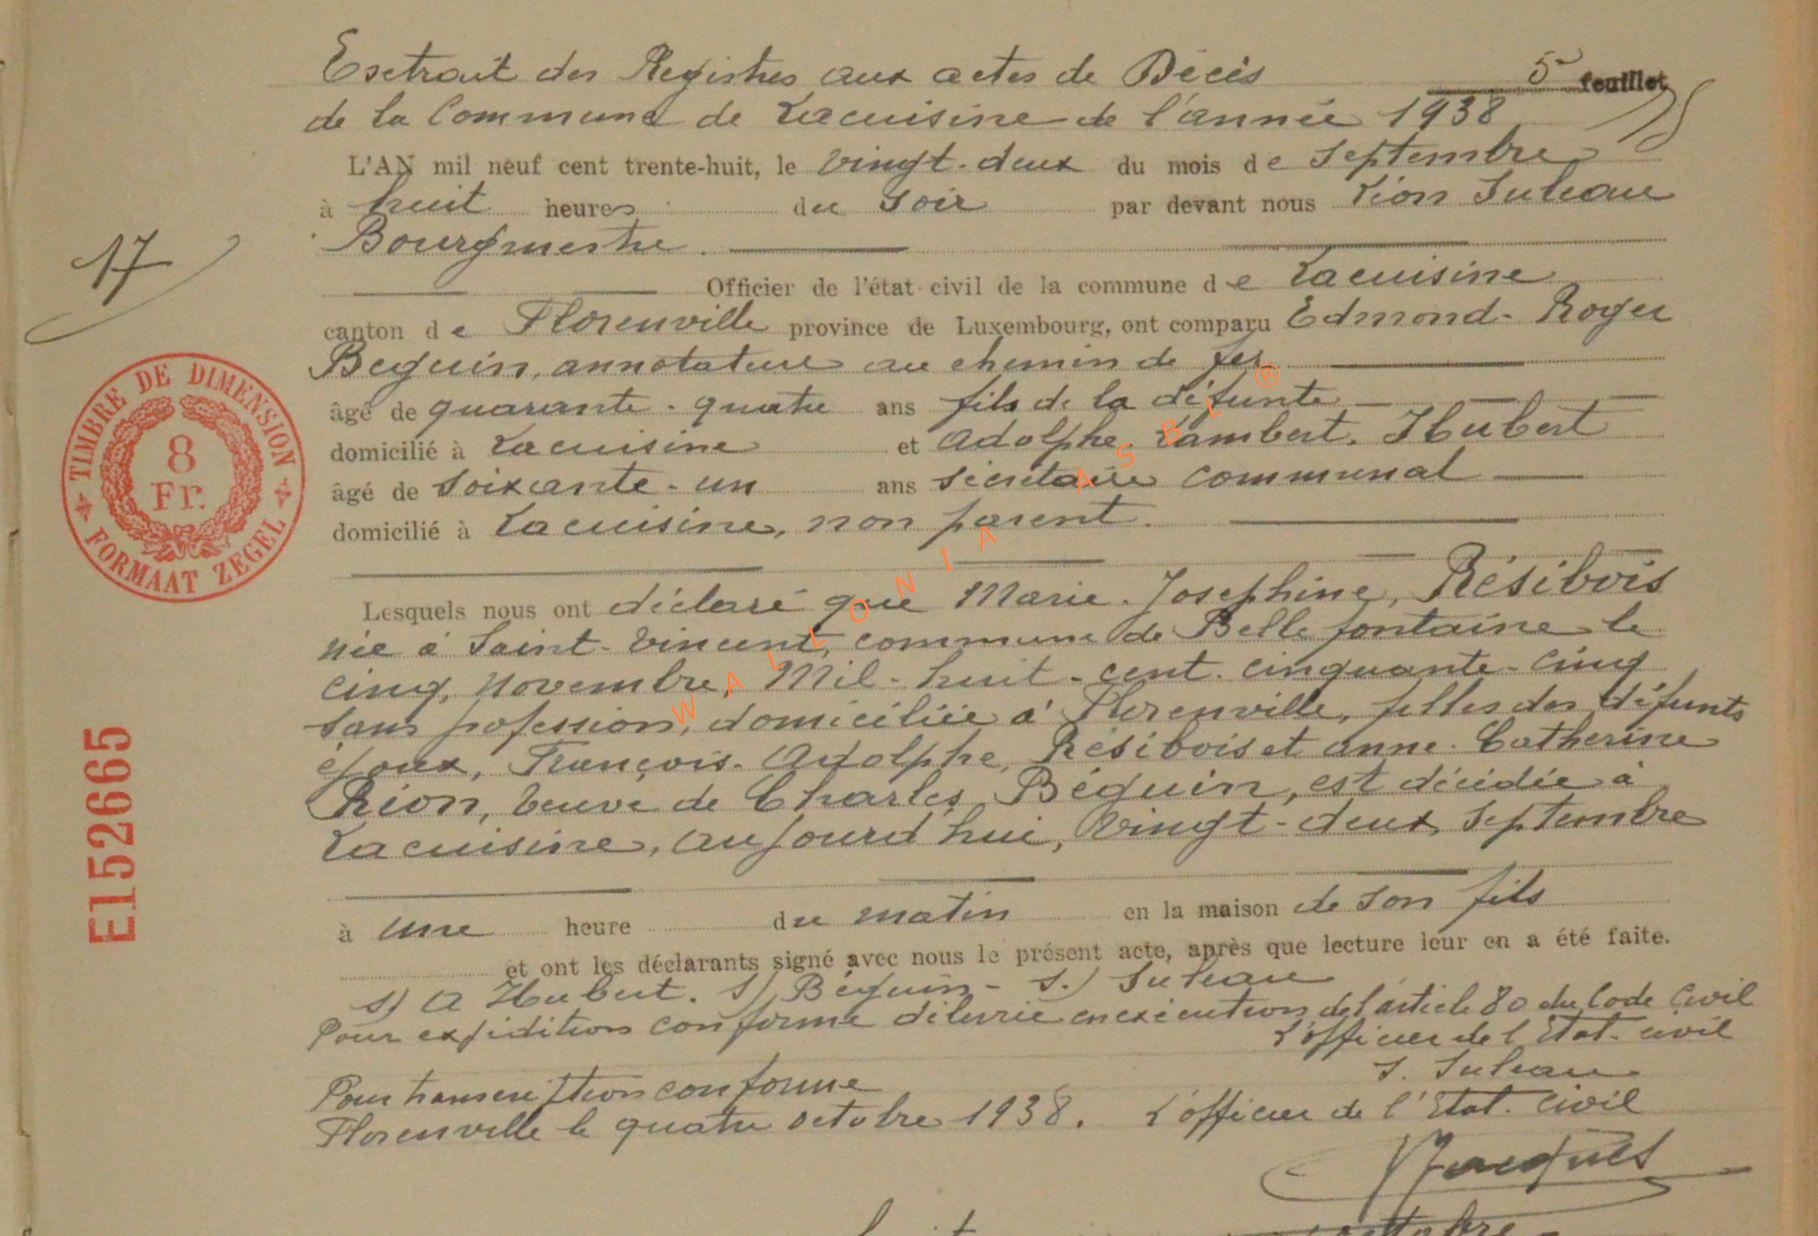 Esctrait des Registres aux actes de Décès
5e feuillet
de la Commune de Lacuisine de l'année 1938
L'AN mil neuf cent trente-huit, le vingt-deux du mois de Septembre
à huit heures du soir par devant nous Léon Suleau
Bourgmestre.
17
Officier de l'état civil de la commune de Lacuisine
canton de Florenville province de Luxembourg, ont comparu Edmond-Roger
Beguin, annotateur au chemin de fer
âgé de quarante-quatre ans fils de la défunte
domicilié à Lacuisine et Adolphe Lambert Hubert
âgé de soixante-un ans secrétaire communal
domicilié à Lacuisine, non parent.
TIMBRE DE DIMENSION
8
Fr.
FORMAAT ZEGEL
Lesquels nous ont déclaré que Marie-Josephine, Résibois
née à Saint-Vincent, commune de Bellefontaine le
cinq, Novembre, Mil-huit-cent-cinquante-cinq
sans profession, domiciliée à Florenville, filles des défunts
époux, François-Adolphe, Résibois et Anne-Catherine
Rion, veuve de Charles, Béguin, est décédée à
Lacuisine, aujourd'hui, vingt-deux Septembre
E152665
à une heure du matin en la maison de son fils
et ont les déclarants signé avec nous le présent acte, après que lecture leur en a été faite.
s) A Hubert. S) Béguin - S.) Suleau
Pour expédition conforme délivrée en exécution de l'article 80 du Code Civil
L'officier de l'Etat-civil
S. Suleau
Pour transcription conforme
Florenville le quatre octobre 1938. L'officier de l'Etat-Civil
Jacques
WALLONIA ASBL ®
octobre